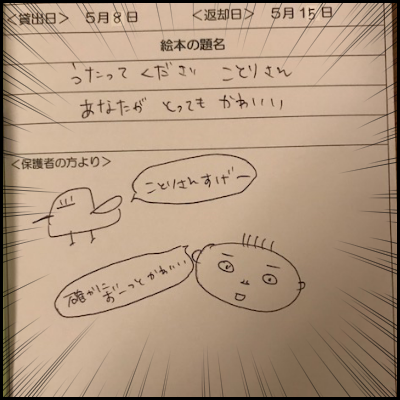 <貸出日> 5月8日 <返却日> 5月15日
絵本の題名
うたってください ことりさん
あなたが とっても かわいい
<保護者の方より>
ことりさんすげー
確かに
ずーっとかわいい